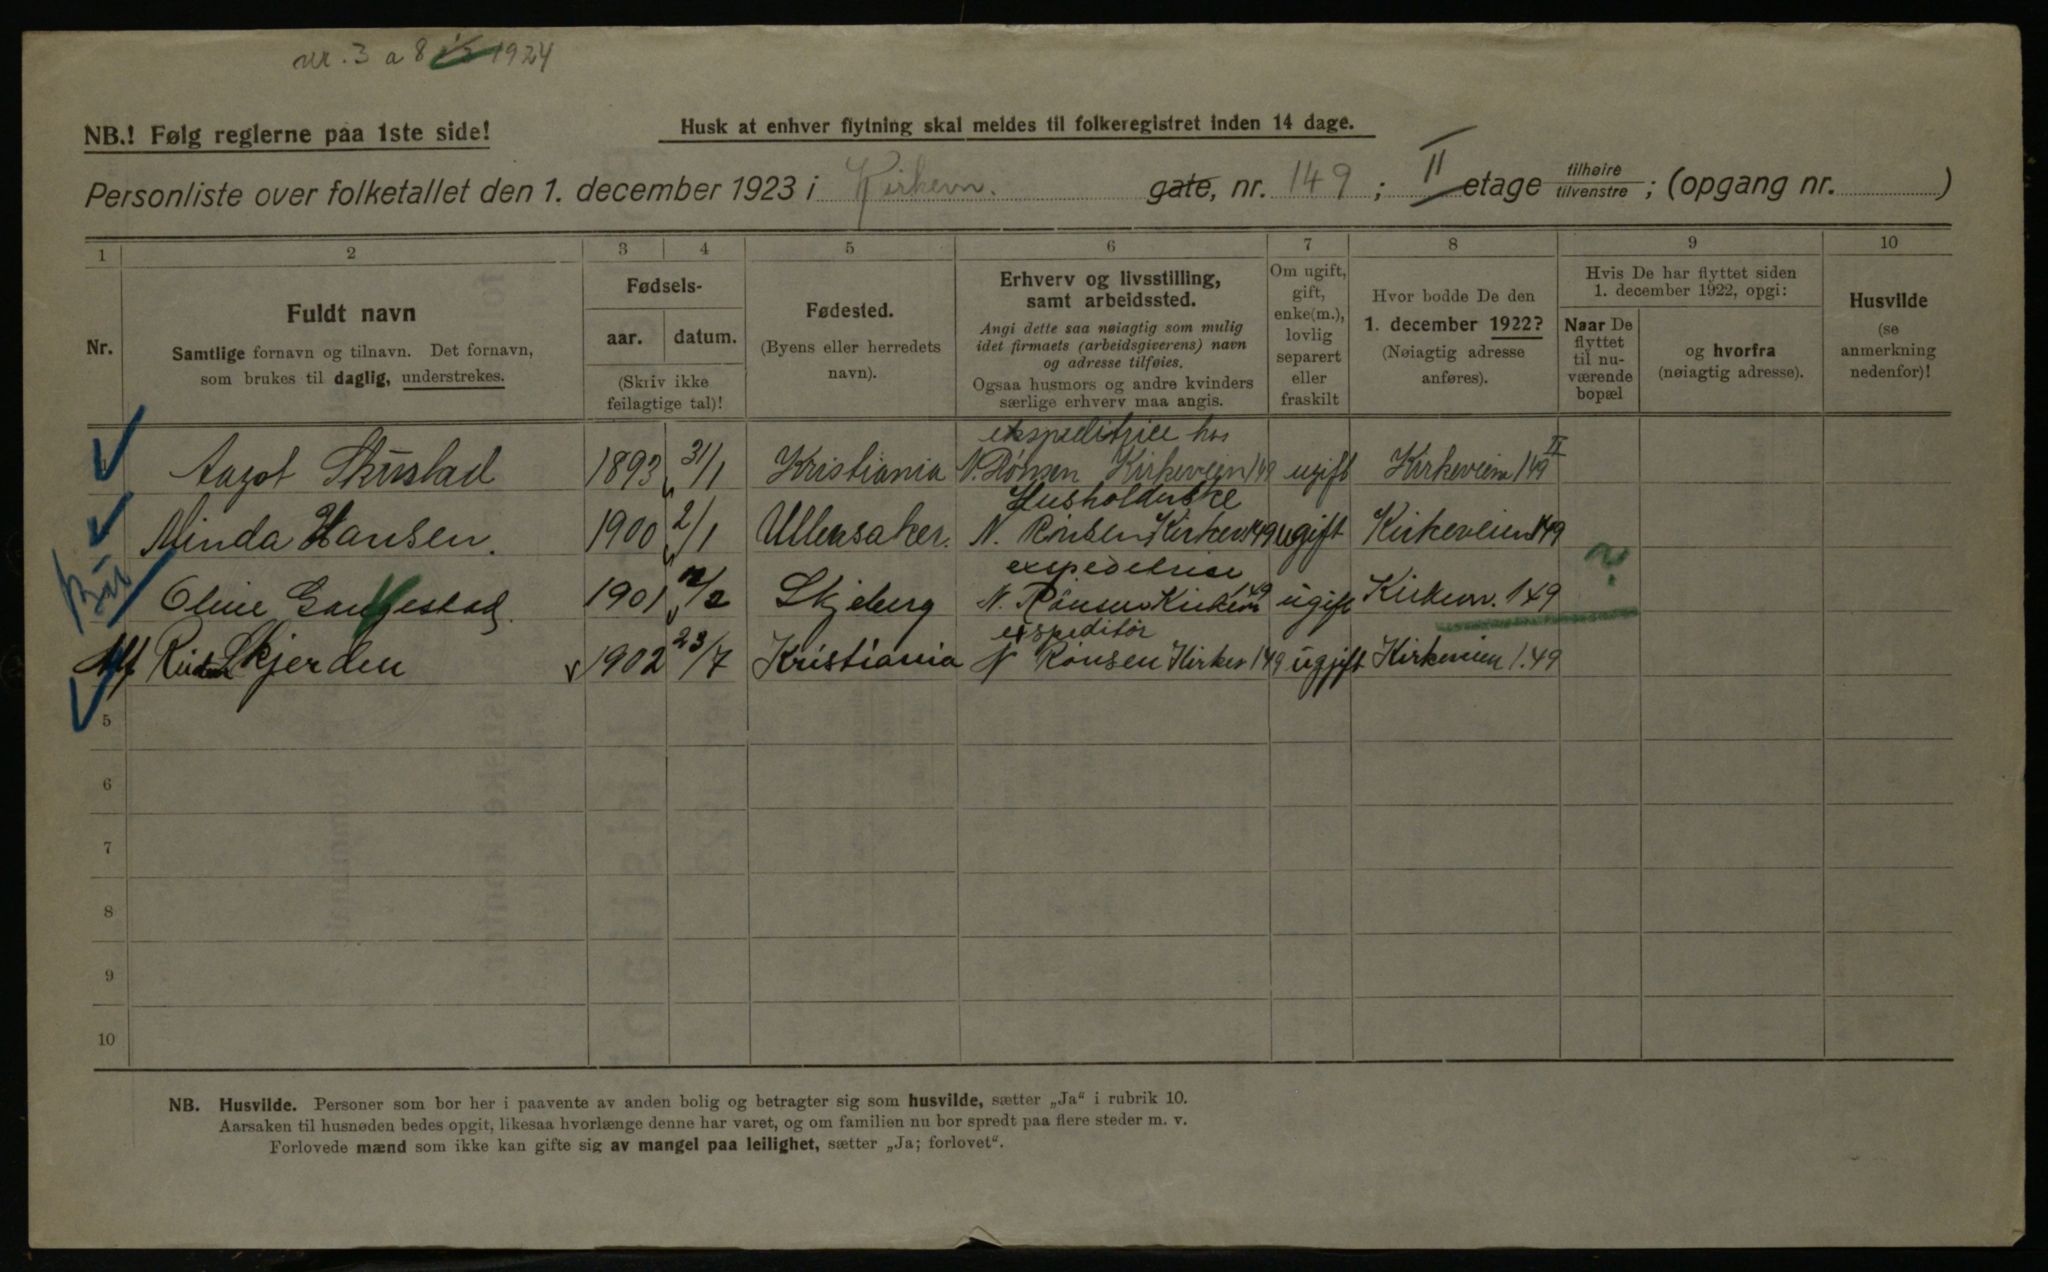 nr. 3 a 8 1/2 1924
NB.! Følg reglerne paa 1ste side!
Husk at enhver flytning skal meldes til folkeregistret inden 14 dage.
Personliste over folketallet den 1. december 1923 i Kirkevn. gate, nr. 149; II etage tilhøire tilvenstre; (opgang nr. )
1 2 3 4 5 6 7 8 9 10
Nr.
Fuldt navn
Samtlige fornavn og tilnavn. Det fornavn,
som brukes til daglig, understrekes.
Fødsels-
aar. datum.
(Skriv ikke
feilagtige tal)!
Fødested.
(Byens eller herredets
navn).
Erhverv og livsstilling,
samt arbeidssted.
Angi dette saa nøiagtig som mulig
idet firmaets (arbeidsgiverens) navn
og adresse tilføies.
Ogsaa husmors og andre kvinders
særlige erhverv maa angis.
Om ugift,
gift,
enke(m.),
lovlig
separert
eller
fraskilt
Hvor bodde De den
1. december 1922?
(Nøiagtig adresse
anføres).
Hvis De har flyttet siden
1. december 1922, opgi:
Naar De
flyttet
til nu-
værende
bopæl
og hvorfra
(nøiagtig adresse).
Husvilde
(se
anmerkning
nedenfor)!
ekspeditrice hos
Aagot Skustad 1893 31/1 Kristiania N. Rønsen Kirkeveien 149 ugift Kirkeveien 149 II
Husholderske
Minda Hansen. 1900 2/1 Ullensaker. N. Rønsen Kirkev 149 ugift Kirkeveien 149
expeditrice
Oline Gaugestad. 1901 12/2 Skjeberg N. Rønsen Kirkevn 149 ugift Kirkevn. 149 ?
expeditör
Alf Skjerden 1902 23/7 Kristiania N Rönsen Kirkev 149 ugift Kirkeveien 149
5
6
7
8
9
10
NB. Husvilde. Personer som bor her i paavente av anden bolig og betragter sig som husvilde, sætter „Ja“ i rubrik 10.
Aarsaken til husnøden bedes opgit, likesaa hvorlænge denne har varet, og om familien nu bor spredt paa flere steder m. v.
Forlovede mænd som ikke kan gifte sig av mangel paa leilighet, sætter „Ja; forlovet“.